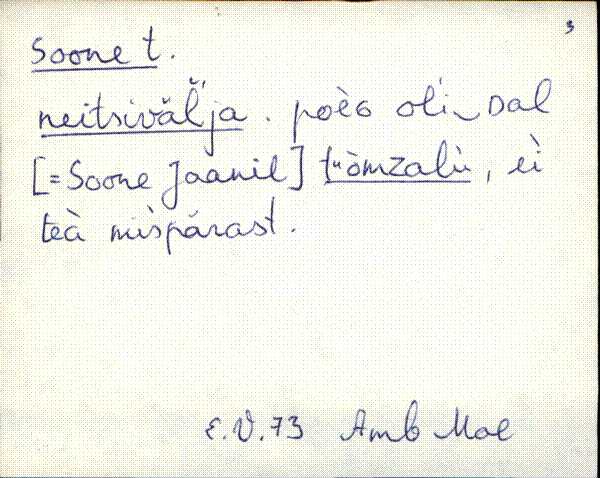 3
Soone t.
neitsivälja. poèG oli‿Dal
[=Soone Jaanil] tuòmzalù, ei
teà mispärast.
E.V.73 Amb Mae